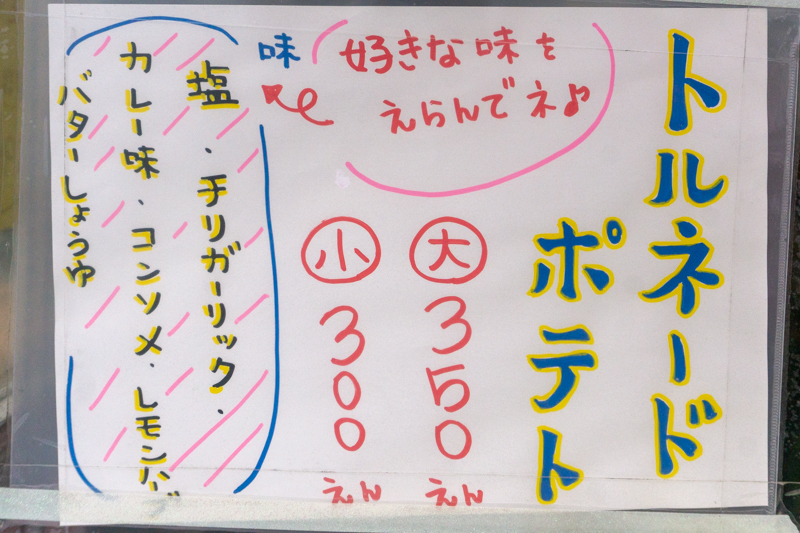 トルネード
ポテト
好きな味を
えらんでネ♪
大 350えん
小 300えん
味
塩、チリガーリック、
カレー味、コンソメ、レモンバ
バターしょうゆ